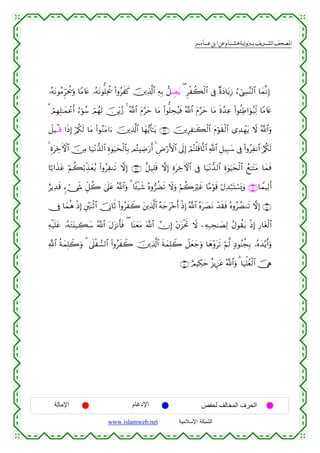 المصحف الشريف برواية هشام عن ابن عامر
إِنَّمَا ٱلنَّسِىٓءُ زِيَادَةٌ فِى ٱلْكُفْرِ ۖ يَضِلُّ بِهِ ٱلَّذِينَ كَفَرُوا۟ يُحِلُّونَهُۥ عَامًا وَيُحَرِّمُونَهُۥ
عَامًا لِّيُوَاطِـُٔوا۟ عِدَّةَ مَا حَرَّمَ ٱللَّهُ فَيُحِلُّوا۟ مَا حَرَّمَ ٱللَّهُ ۚ زُيِّنَ لَهُمْ سُوٓءُ أَعْمَـٰلِهِمْ ۗ
وَٱللَّهُ لَا يَهْدِى ٱلْقَوْمَ ٱلْكَـٰفِرِينَ ۝ يَـٰٓأَيُّهَا ٱلَّذِينَ ءَامَنُوا۟ مَا لَكُمْ إِذَا قِيلَ
لَكُمُ ٱنفِرُوا۟ فِى سَبِيلِ ٱللَّهِ ٱثَّاقَلْتُمْ إِلَى ٱلْأَرْضِ ۚ أَرَضِيتُم بِٱلْحَيَوٰةِ ٱلدُّنْيَا مِنَ ٱلْـَٔاخِرَةِ ۚ
فَمَا مَتَـٰعُ ٱلْحَيَوٰةِ ٱلدُّنْيَا فِى ٱلْـَٔاخِرَةِ إِلَّا قَلِيلٌ ۝ إِلَّا تَنفِرُوا۟ يُعَذِّبْكُمْ عَذَابًا
أَلِيمًا ۝ وَيَسْتَبْدِلْ قَوْمًا غَيْرَكُمْ وَلَا تَضُرُّوهُ شَيْـًٔا ۗ وَٱللَّهُ عَلَىٰ كُلِّ شَىْءٍ قَدِيرٌ
۝ إِلَّا تَنصُرُوهُ فَقَدْ نَصَرَهُ ٱللَّهُ إِذْ أَخْرَجَهُ ٱلَّذِينَ كَفَرُوا۟ ثَانِىَ ٱثْنَيْنِ إِذْ هُمَا فِى
ٱلْغَارِ إِذْ يَقُولُ لِصَـٰحِبِهِۦ لَا تَحْزَنْ إِنَّ ٱللَّهَ مَعَنَا ۖ فَأَنزَلَ ٱللَّهُ سَكِينَتَهُۥ عَلَيْهِ
وَأَيَّدَهُۥ بِجُنُودٍ لَّمْ تَرَوْهَا وَجَعَلَ كَلِمَةَ ٱلَّذِينَ كَفَرُوا۟ ٱلسُّفْلَىٰ ۗ وَكَلِمَةُ ٱللَّهِ
هِىَ ٱلْعُلْيَا ۗ وَٱللَّهُ عَزِيزٌ حَكِيمٌ ۝
الحرف المخالف لحفص الإدغام الإمالة
الشبكة الإسلامية www.islamweb.net